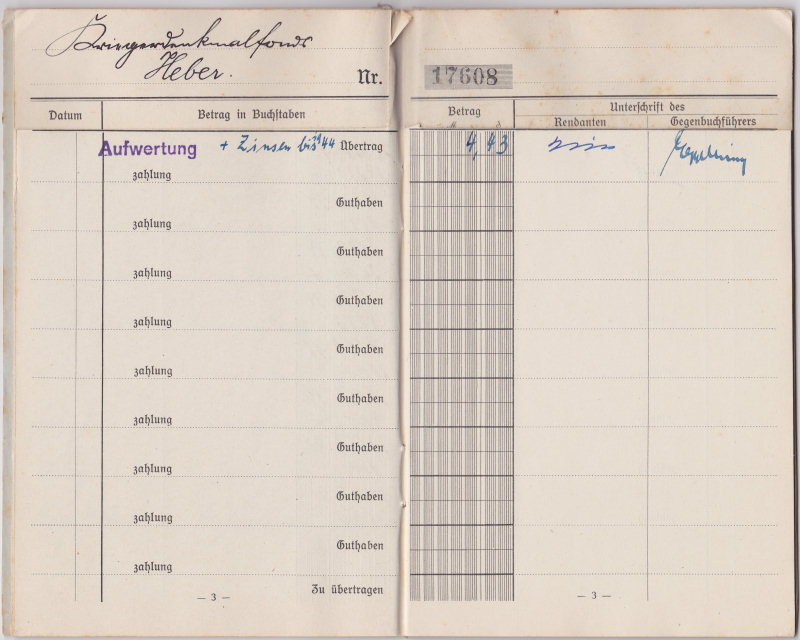 Kriegerdenkmalfonds
Heber.
Nr. 17608
Datum Betrag in Buchstaben Betrag Unterschrift des
Rendanten Gegenbuchführers
Aufwertung + Zinsen bis 44 Übertrag 4,43
zahlung
Guthaben
zahlung
Guthaben
zahlung
Guthaben
zahlung
Guthaben
zahlung
Guthaben
zahlung
Guthaben
zahlung
Guthaben
zahlung
Guthaben
zahlung
Zu übertragen
— 3 — — 3 —